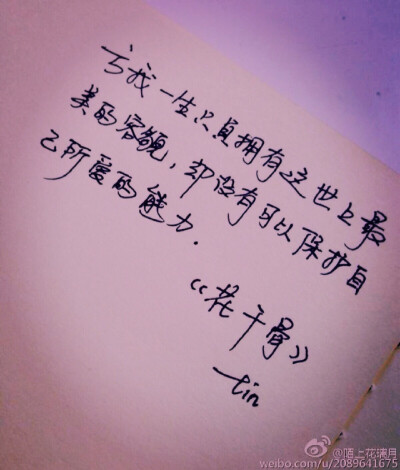 亏我一生只负拥有这世上最
美的容貌,却没有可以保护自
己所爱的能力.
《花千骨》
—tin
@陌上花璃月
weibo.com/u/2089641675